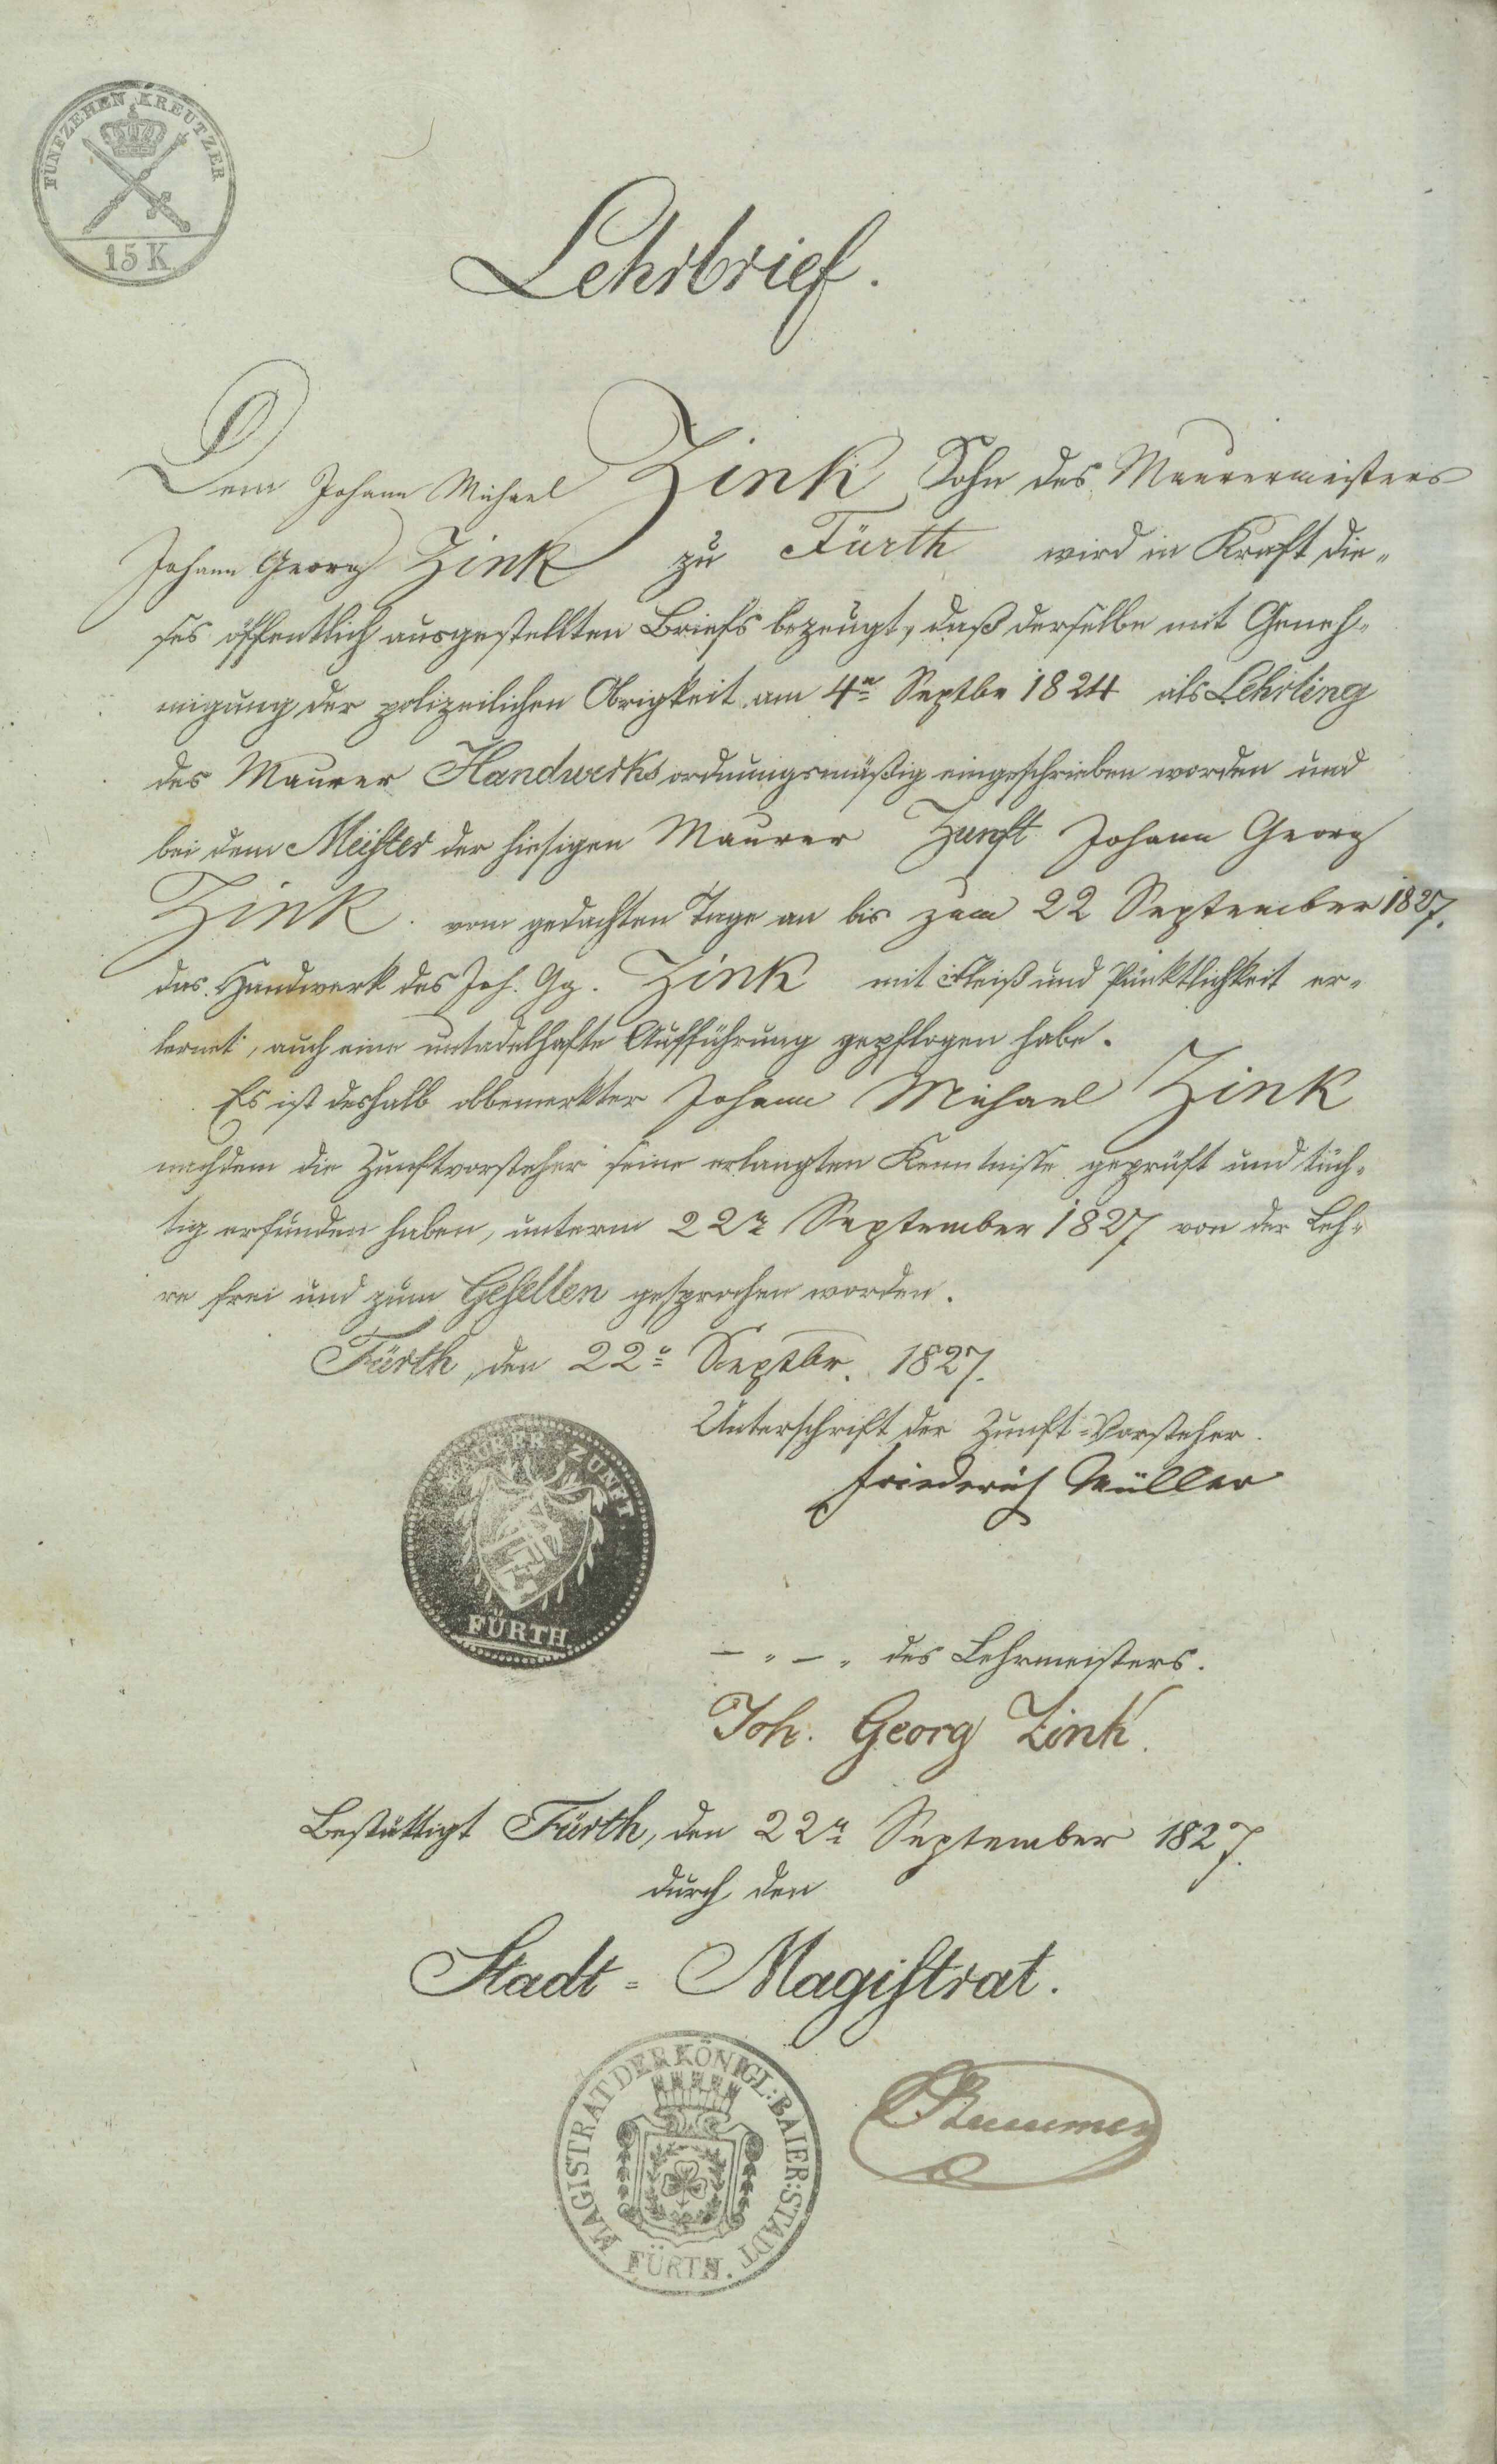 FÜNFZEHEN KREUTZER
15 K
Lehrbrief.
Dem Johann Michael Zink Sohn des Maurermeisters
Johann Georg Zink zu Fürth wird in Kraft die„
ses öffentlich ausgestellten Briefs bezeugt, daß derselbe mit Geneh„
migung der polizeilichen Obrigkeit am 4n Septbr 1824 als Lehrling
des Maurer Handwerks ordnungsmäßig eingeschrieben worden und
bei dem Meister der hiesigen Maurer Zunft Johann Georg
Zink. vom gedachten Tage an bis zum 22 September 1827.
das Handwerk des Joh. Gg. Zink mit Fleiß und Pünktlichkeit er„
lernet, auch eine untadelhafte Aufführung gepflogen habe.
Es ist deshalb obbemerkter Johann Michael Zink
nachdem die Zunftvorsteher seine erlangten Kenntnisse geprüft und tüch„
tig erfunden haben, unterm 22n September 1827 von der Leh„
re frei und zum Gesellen gesprochen worden.
Fürth, den 22n Septbr. 1827.
Unterschrift der Zunft=Vorsteher.
Friederich Müller
MAURER-ZUNFT
FÜRTH
— „ — „ des Lehrmeisters.
Joh. Georg Zink.
Bestättigt Fürth, den 22n September 1827.
durch den
Stadt=Magistrat.
MAGISTRAT DER KÖNIGL: BAIER: STADT
FÜRTH.